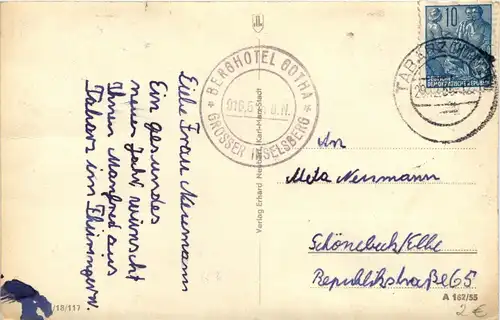 Liebe Frau Neumann
Ein gesundes
neues Jahr wünscht
Ihnen Manfred aus
Tabarz im Thüringerw.
BERGHOTEL GOTHA
916,5 ü.N.N.
GROSSER INSELSBERG
10
DEUTSCHE
DEMOKRATISCHE REPUBLIK
TABARZ
An
Meta Neumann
Schönebeck/Elbe
Republikstraße 65
Verlog Erhard Neubert, Karl-Marx-Stadt
/18/117
A 162/55
2 €